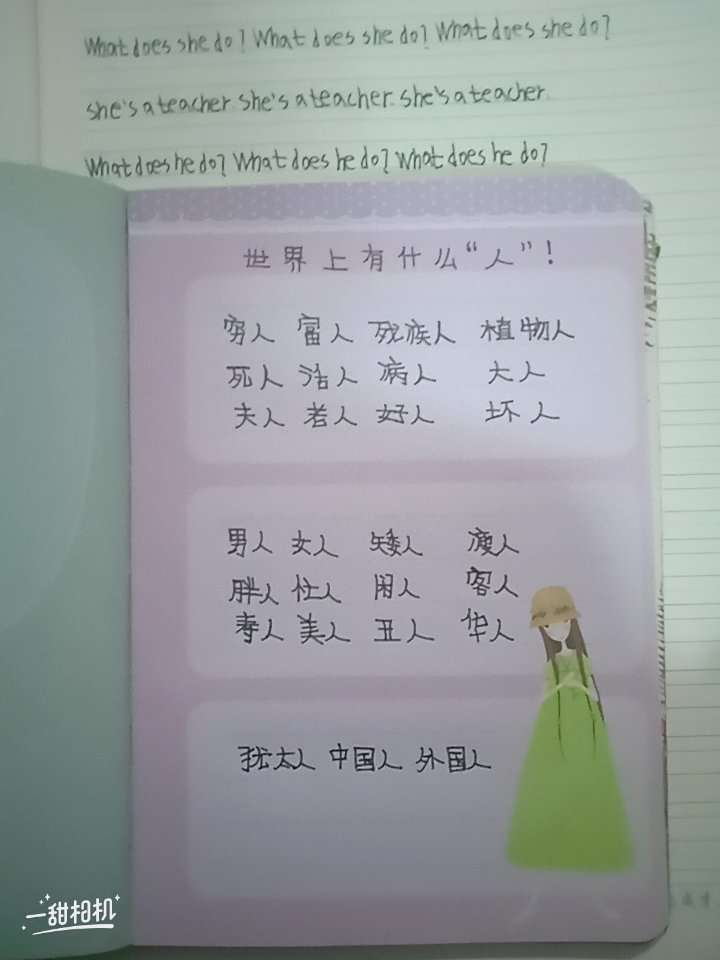 What does she do? What does she do? What does she do?
she's a teacher. she's a teacher. she's a teacher.
What does he do? What does he do? What does he do?
世界上有什么“人”!
穷人 富人 残疾人 植物人
死人 活人 病人 大人
夫人 老人 好人 坏人
男人 女人 矮人 瘦人
胖人 忙人 闲人 客人
寿人 美人 丑人 华人
犹太人 中国人 外国人
一甜相机